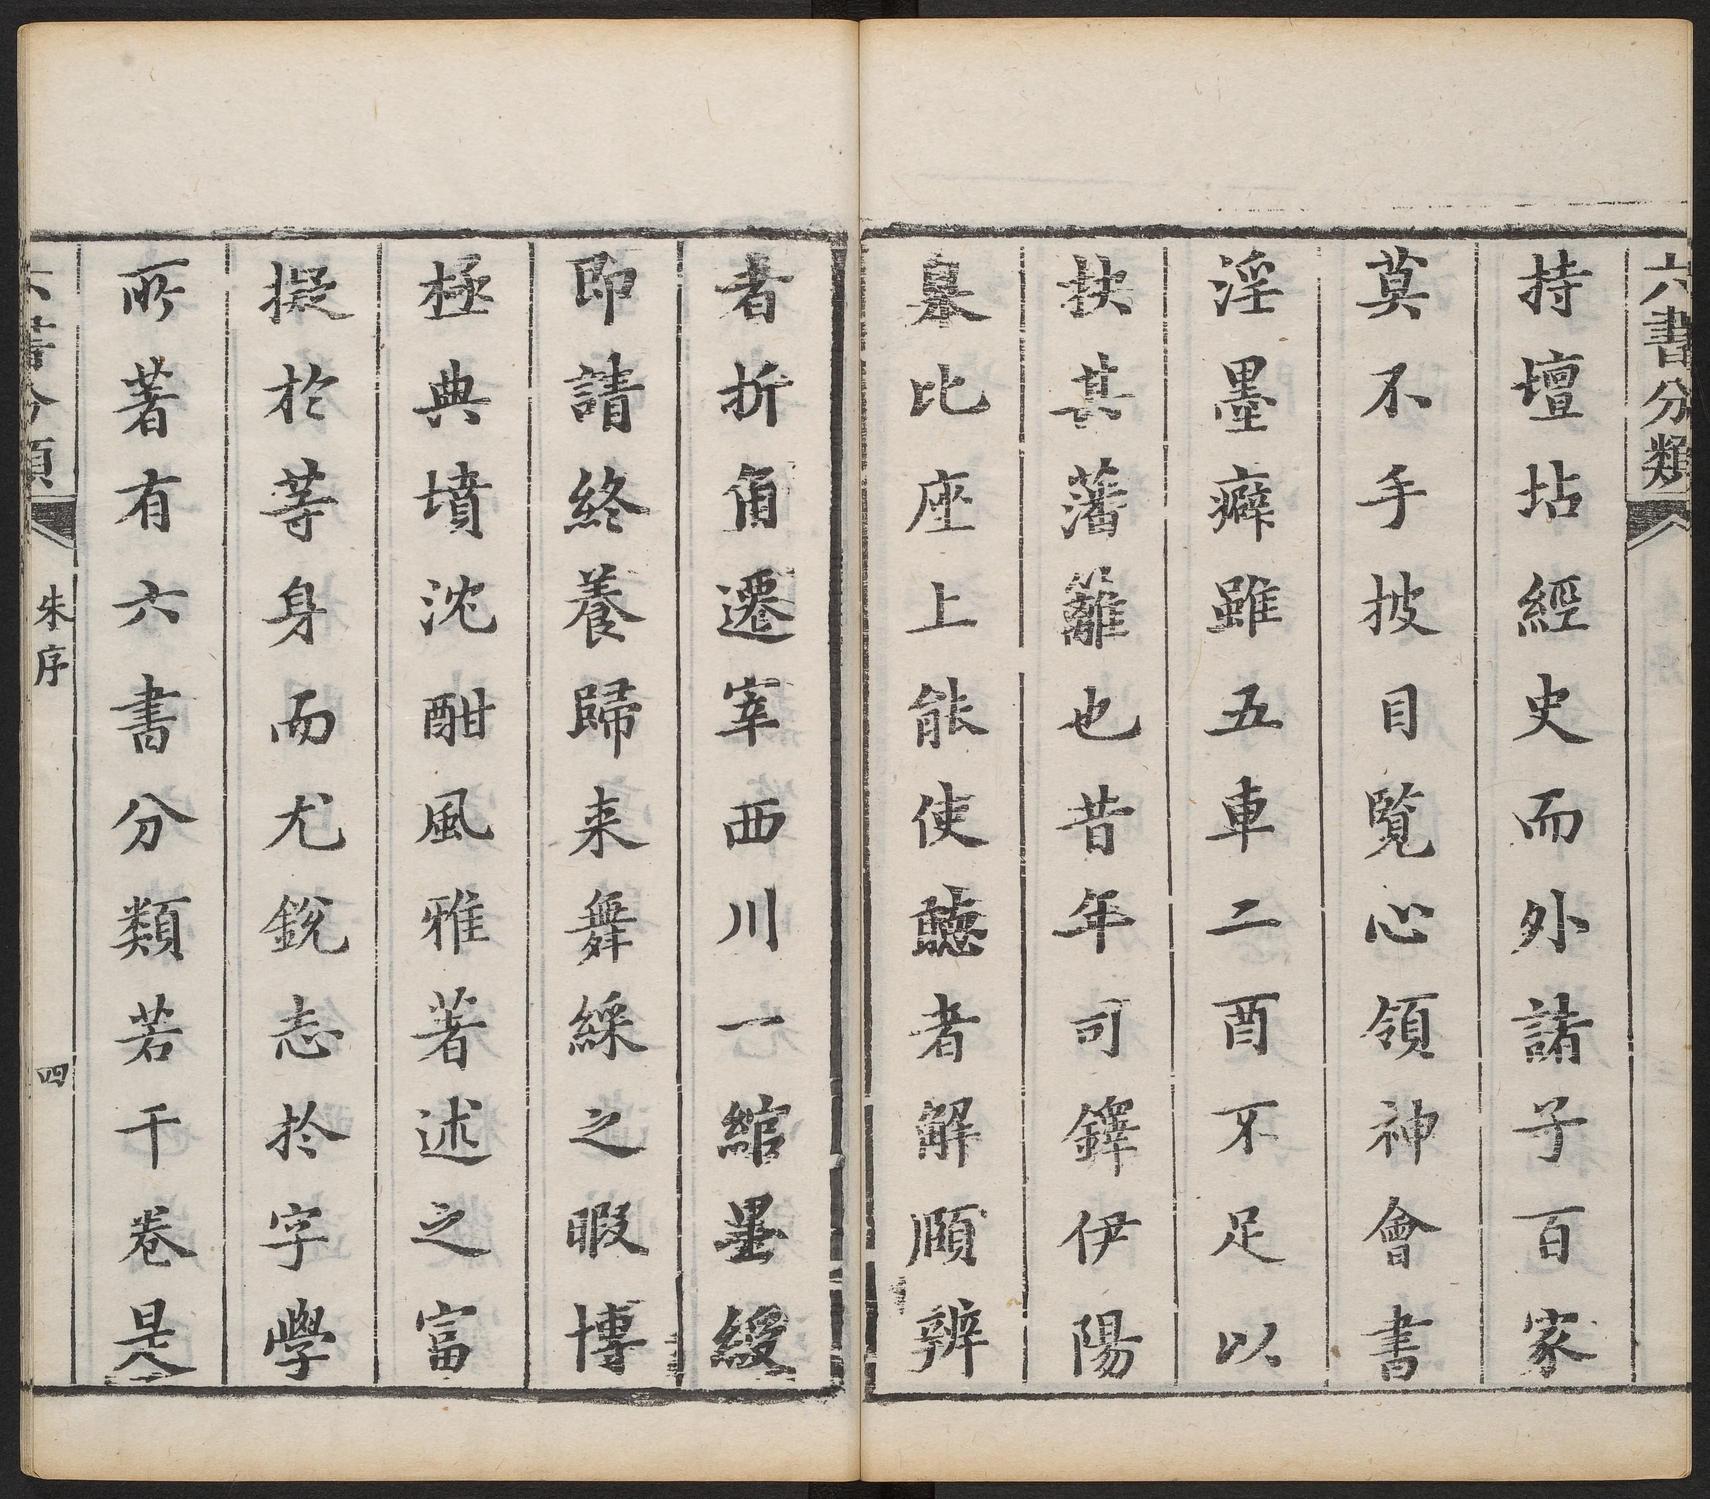 六書分類
持壇坫經史而外諸子百家
莫不手披目覽心領神會書
淫墨癖雖五車二酉不足以
抉其藩籬也昔年司鐸伊陽
臯比座上能使聽者解頤辨
者折角遷宰西川一綰墨綬
即請終養歸来舞綵之暇博
極典墳沈酣風雅著述之富
擬於等身而尤銳志於字學
所著有六書分類若干卷是
六書分類
朱序
四